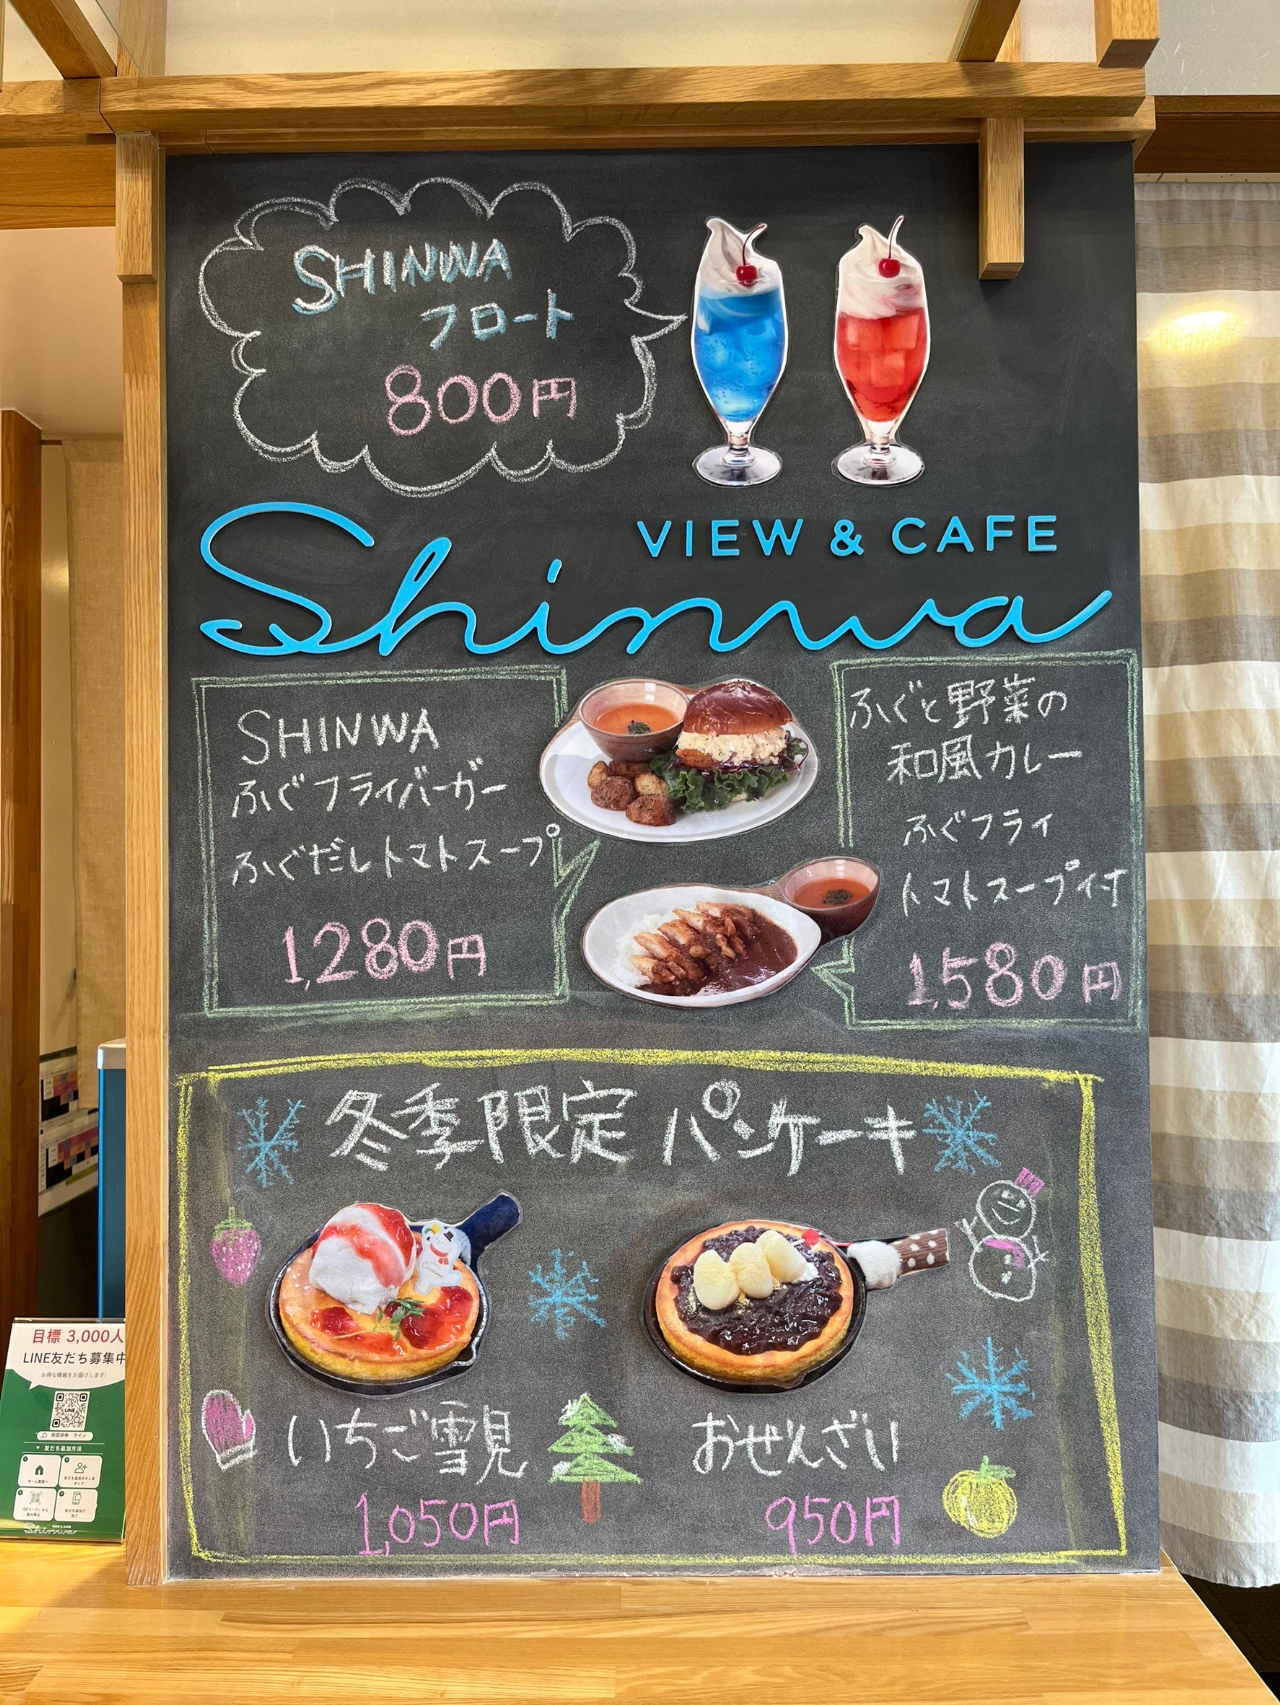 SHINWA
フロート
800円
VIEW & CAFE
Shinwa
SHINWA
ふぐフライバーガー
ふぐだしトマトスープ
1,280円
ふぐと野菜の
和風カレー
ふぐフライ
トマトスープ付
1,580円
冬季限定 パンケーキ
いちご雪見
1,050円
おぜんざい
950円
目標 3,000人
LINE友だち募集中
お得な情報をお届けします!
LINE
友だち追加方法
Shinwa